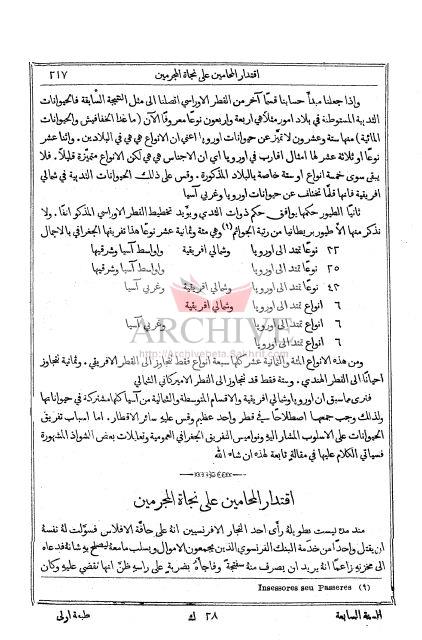 اقتدار المحامين على نجاة المجرمين ٢١٧
واذا جعلنا مبدأ حسابنا قسمًا آخر من القطر الاوراسي اتصلنا الى مثل النتيجة السابقة فالحيوانات
الثديية المستوطنة في بلاد امور مثلًا هي اربعة واربعون نوعًا معروفًا الآن (ما عدا الخفافيش والحيوانات
المائية) منها ستة وعشرون لا تتميز عن حيوانات اوربا اعني ان الانواع هي هي في البلادين. واثنا عشر
نوعًا او ثلاثة عشر لها امثال اقارب في اوربا اي ان الاجناس هي هي لكن الانواع متميّزة قليلًا. فلا
يبقى سوى خمسة انواع او ستة خاصة بالبلاد المذكورة. وقس على ذلك الحيوانات الثديية في شمالي
افريقية فانها قلّما تختلف عن حيوانات اوربا وغربي آسيا
ثانيًا الطيور حكمها يوافق حكم ذوات الثدي ويؤيد تخطيط القطر الاوراسي المذكور آنفًا. ولا
نذكر منها الّا طيور بريطانيا من رتبة الجواثم (٩) وهي مئة وثمانية عشر نوعًا هذا تفريقها الجغرافي بالاجمال
٢٢ نوعًا تمتد الى اوربا وشمالي افريقية واواسط آسيا وشرقيها
٢٥ نوعًا تمتد الى اوربا واواسط آسيا وشرقيها
٤٢ نوعًا تمتد الى اوربا وشمالي افريقية وغربي آسيا
٦ انواع تمتد الى اوربا وشمالي افريقية
٦ انواع تمتد الى اوربا وغربي آسيا
٦ انواع تمتد الى اوربا
ARCHIVE
http://Archivebeta.Sakhrit.com
ومن هذه الانواع المئة والثمانية عشر كلها سبعة انواع فقط تتجاوز الى القطر الافريقي. وثمانية تتجاوز
احيانًا الى القطر الهندي. وستة فقط قد تتجاوز الى القطر الاميركاني الشمالي
فترى مما سبق ان اوربا وشمالي افريقية والاقسام المتوسطة والشمالية من آسيا كلها مشتركة في حيواناتها
ولذلك وجب جمعها اصطلاحًا في قطر واحد عظيم وقس عليه سائر الاقطار. اما اسباب تفريق
الحيوانات على الاسلوب المشار اليه ونواميس التفريق الجغرافي العمومية وتعليلات بعض الشواذ المشهورة
فسيأتي الكلام عليها في مقالة تابعة لهذه ان شاء الله
اقتدار المحامين على نجاة المجرمين
منذ مدة ليست بطويلة رأى احد التجار الافرنسيين انه على حافّة الافلاس فسوّلت له نفسه
ان يقتل واحدًا من خدَمة البنك الفرنسوي الذين يجمعون الاموال ويسلب ما معه ليصلح به شانه فدعاه
الى مخزنه زاعمًا انه يريد ان يصرف منه سفتجة وفاجأه بضربة على راسه ظن انها تقضي عليه وكان
(٩) Insessores seu Passeres
السنة السابعة ٢٨ ك طبعة اولى